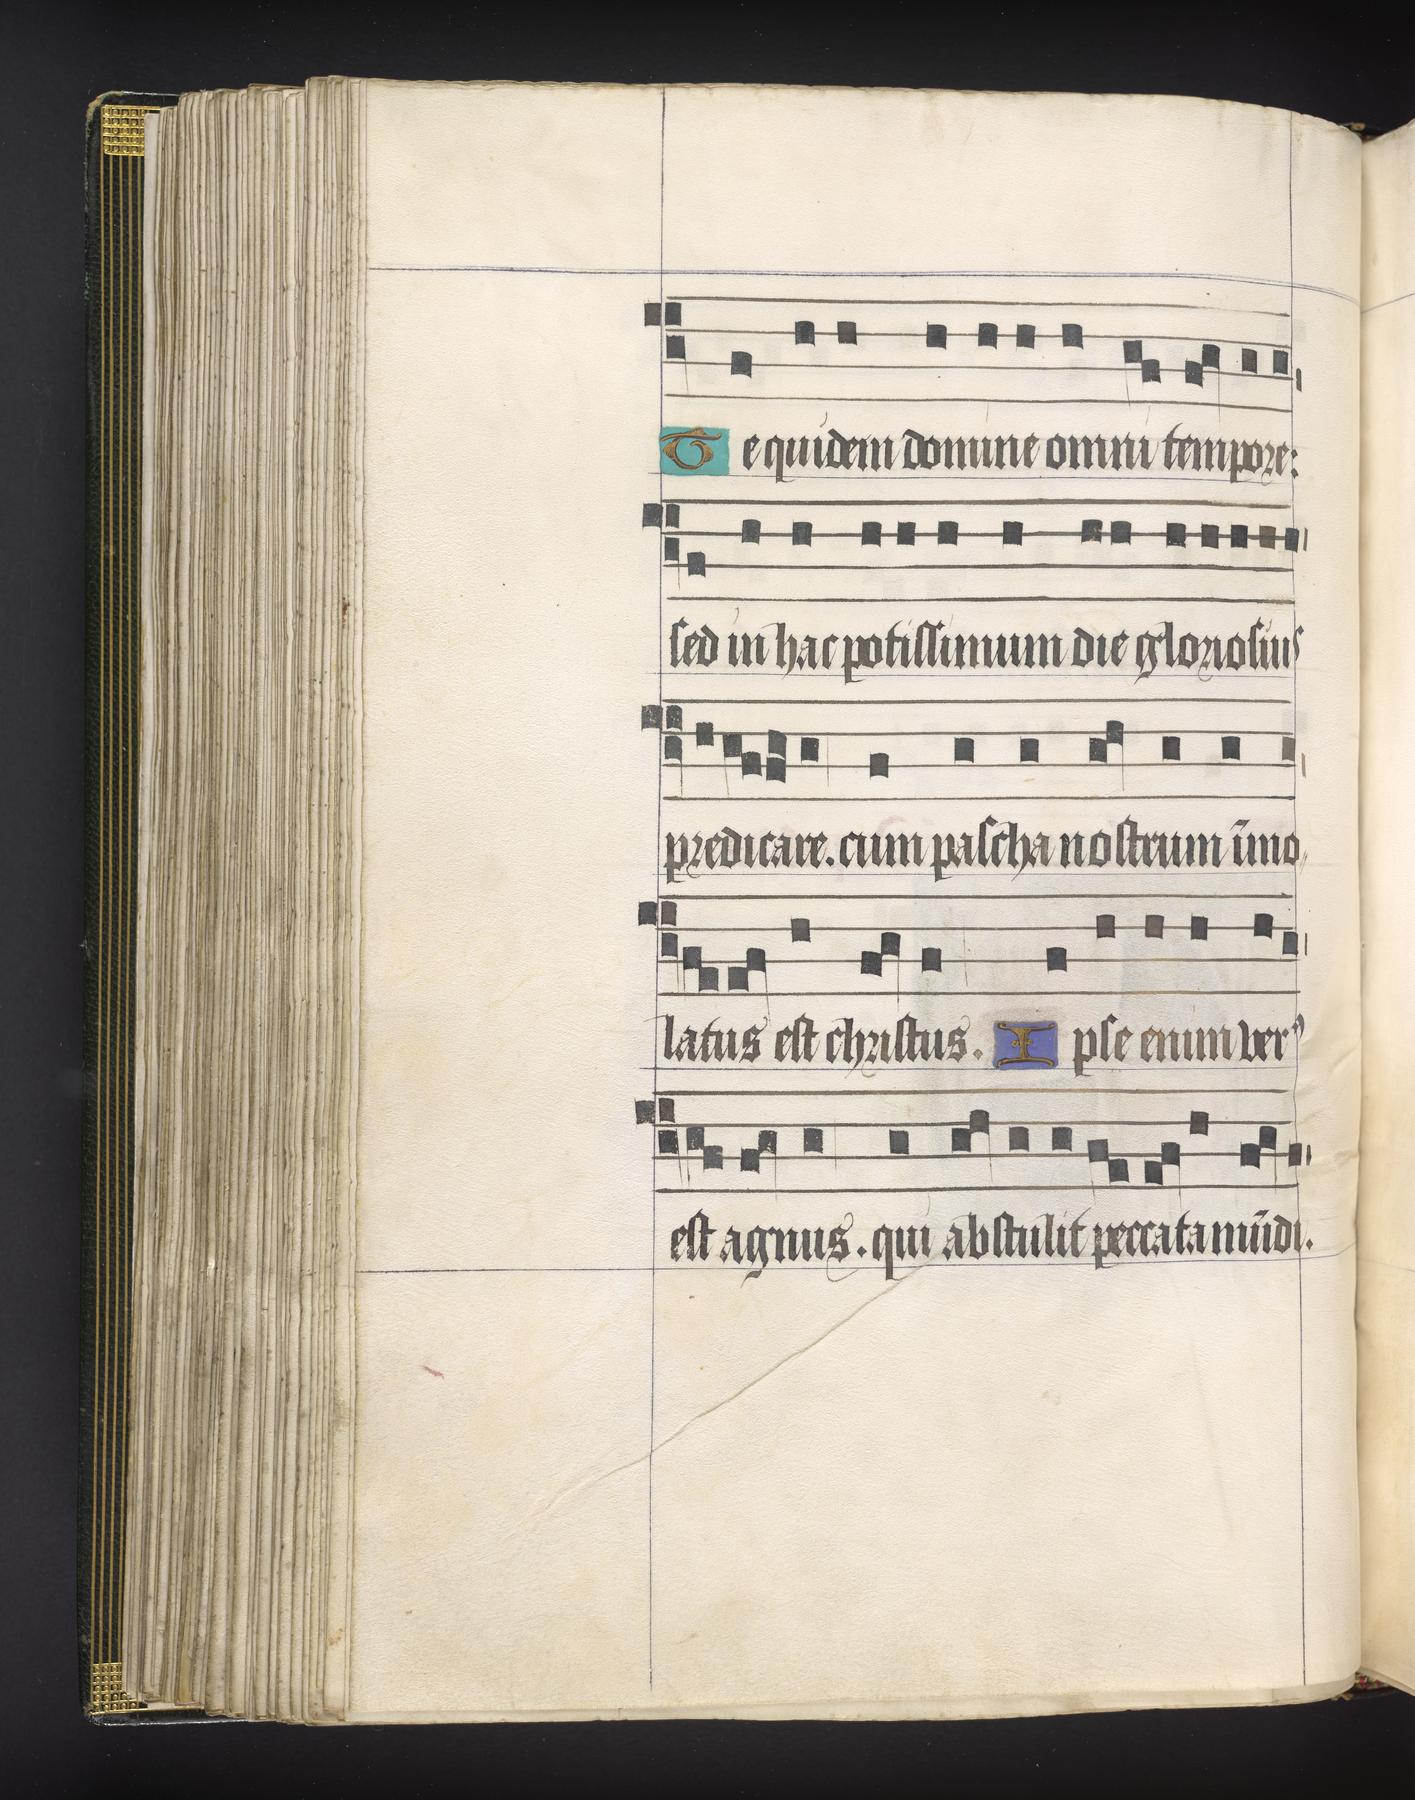 Te quidem domine omni tempore:
sed in hac potissimum die gloriosius
predicare. cum pascha nostrum īmo
latus est christus. Ipse enim verꝰ
est agnus. qui abstulit peccata mūdi.